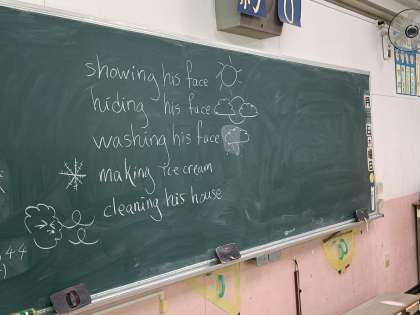 showing his face
hiding his face
washing his face
making ice cream
cleaning his house
44